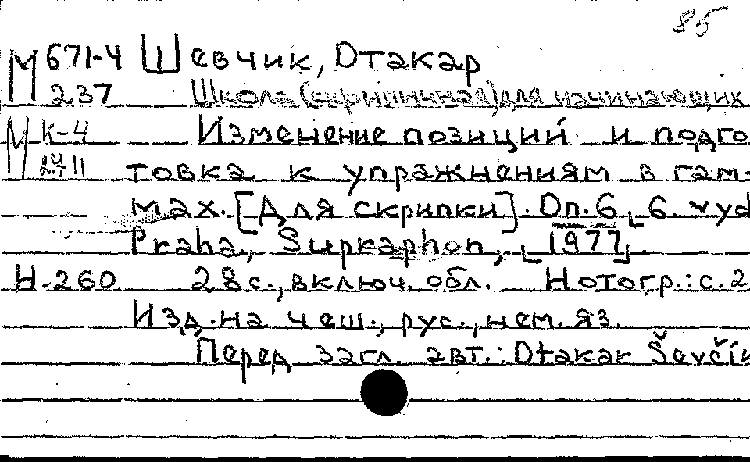 85
М 671-4 Шевчик, Отакар
237 Школа (скрипичная) для начинающих
М К-4 Изменение позиций и подго
VII товка к упражнениям в гам-
мах. [Для скрипки]. Оп. 6 6. vyd
Praha, Supraphon, 1977
Н-260 28 с., включ. обл. Нотогр.: с. 2
Изд. на чеш., рус., нем. яз.
Перед загл. авт.: Otakar Ševčík